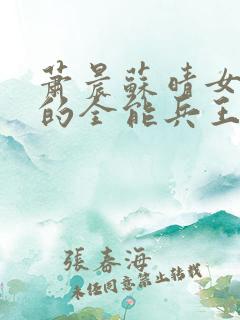 蕭晨蘇晴女
的全能兵王
張春海
未經同意禁止轉載